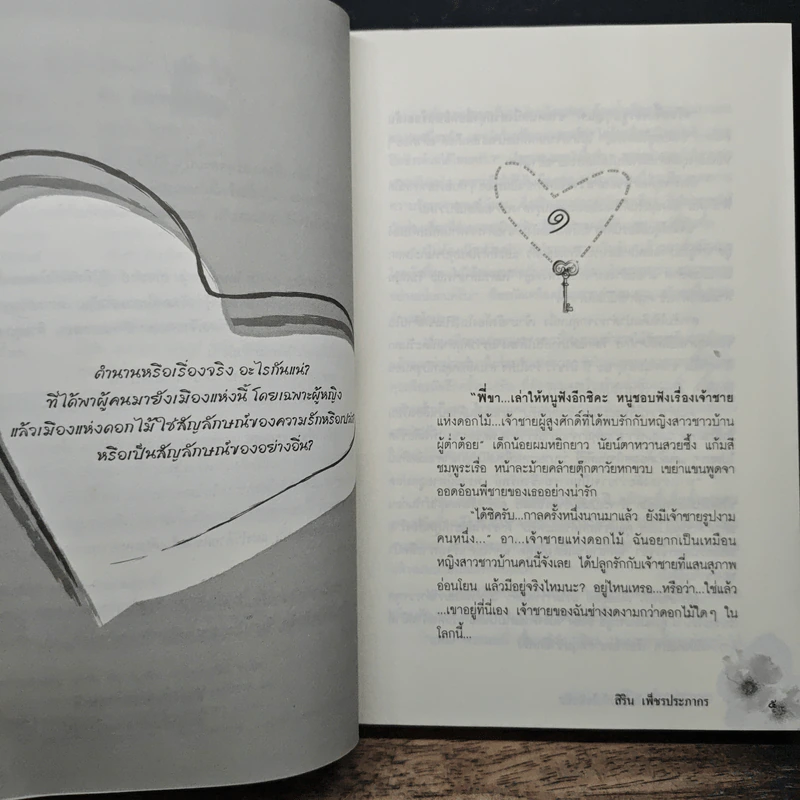 ตำนานหรือเรื่องจริง อะไรกันแน่?
ที่ได้พาผู้คนมายังเมืองแห่งนี้ โดยเฉพาะผู้หญิง
แล้วเมืองแห่งดอกไม้ใช่สัญลักษณ์ของความรักหรือเปล่า
หรือเป็นสัญลักษณ์ของอย่างอื่น?
๑
"พี่ขา...เล่าให้หนูฟังอีกซิคะ หนูชอบฟังเรื่องเจ้าชาย
แห่งดอกไม้...เจ้าชายผู้สูงศักดิ์ที่ได้พบรักกับหญิงสาวชาวบ้าน
ผู้ต่ำต้อย" เด็กน้อยผมหยิกยาว นัยน์ตาหวานสวยซึ้ง แก้มสี
ชมพูระเรื่อ หน้าละม้ายคล้ายตุ๊กตาวัยหกขวบ เขย่าแขนพูดจา
ออดอ้อนพี่ชายของเธออย่างน่ารัก
"ได้ซิครับ...กาลครั้งหนึ่งนานมาแล้ว ยังมีเจ้าชายรูปงาม
คนหนึ่ง..." อา...เจ้าชายแห่งดอกไม้ ฉันอยากเป็นเหมือน
หญิงสาวชาวบ้านคนนี้จังเลย ได้ปลูกรักกับเจ้าชายที่แสนสุภาพ
อ่อนโยน แล้วมีอยู่จริงไหมนะ? อยู่ไหนเหรอ...หรือว่า...ใช่แล้ว
...เขาอยู่ที่นี่เอง เจ้าชายของฉันช่างงดงามกว่าดอกไม้ใดๆ ใน
โลกนี้...
สิริน เพ็ชรประภากร
๕